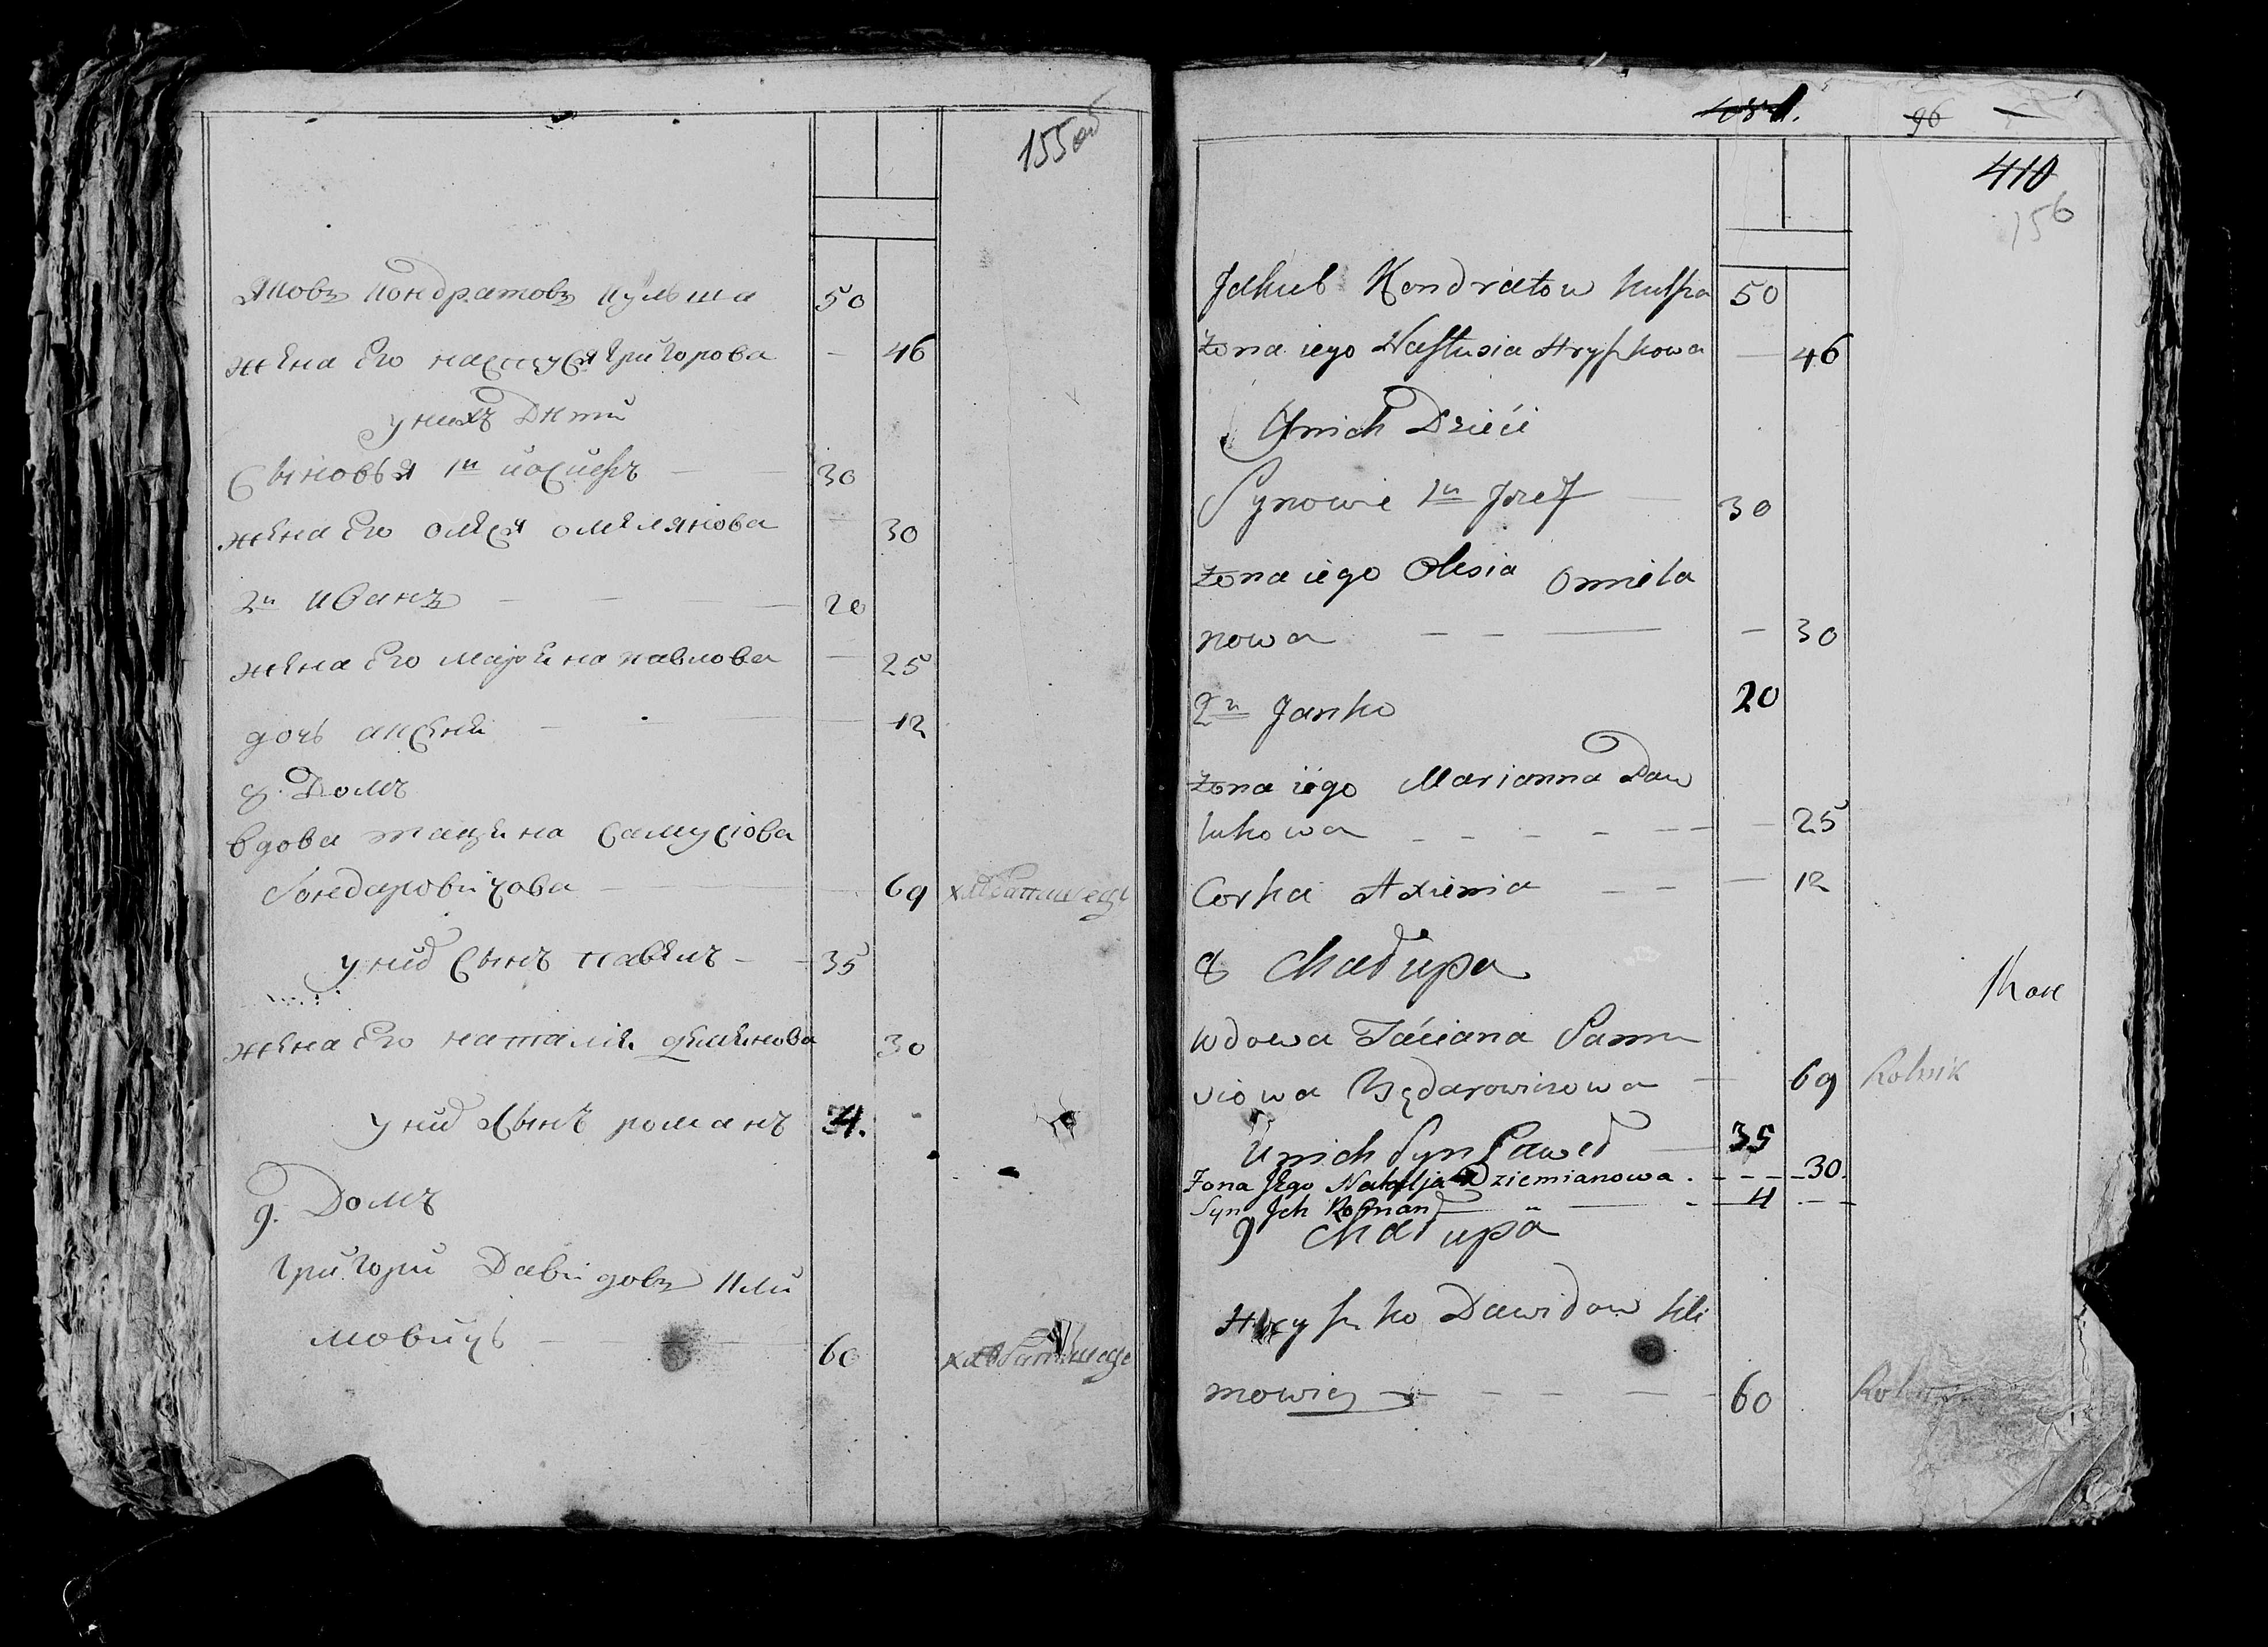 155об
Яковъ Кондратовъ Кульша 50
жена его Настуся Григорова — 46
у нихъ Дѣти
Сыновья 1й Йосифъ — — 30
жена его Олеся Омелянова — 30
2й Иванъ — — — 20
жена его Марьяна Павлова — 25
дочь Аксеня — — — 12
8. Домъ
вдова Тацяна Самусіова
Бондаровичова — — 69 хлѣбапашецъ
у ний Сынъ Павелъ — — 35
жена его Наталія Демянова 30
у ний Сынъ Романъ 4.
9. Домъ
Григори Давидовъ Кли
мовичъ — — 60 хлѣбапашецъ
96 —
410
156
Jakub Kondratow Kulsza 50
żona iego Nastusia Hryszkowa — 46
Unich Dzieci
Synowie 1n Jozef — 30
żona iego Olesia Omiela
nowa — — — — 30
2n Janko 20
żona iego Marianna Paw
lukowa — — — — — 25
Corka Axienia — — — 12
8 Chałupa
Wdowa Taciana Samu
siowa Będarowiczowa — 69 Rolnik
Unich Syn Paweł — 35
Żona Jego Natalja Dziemianowa . - - - 30.
Syn Ich Roman — — - 4 - -
9 Chałupa
Hryszko Dawidow Kli
mowicz — — — — 60 Rolnik